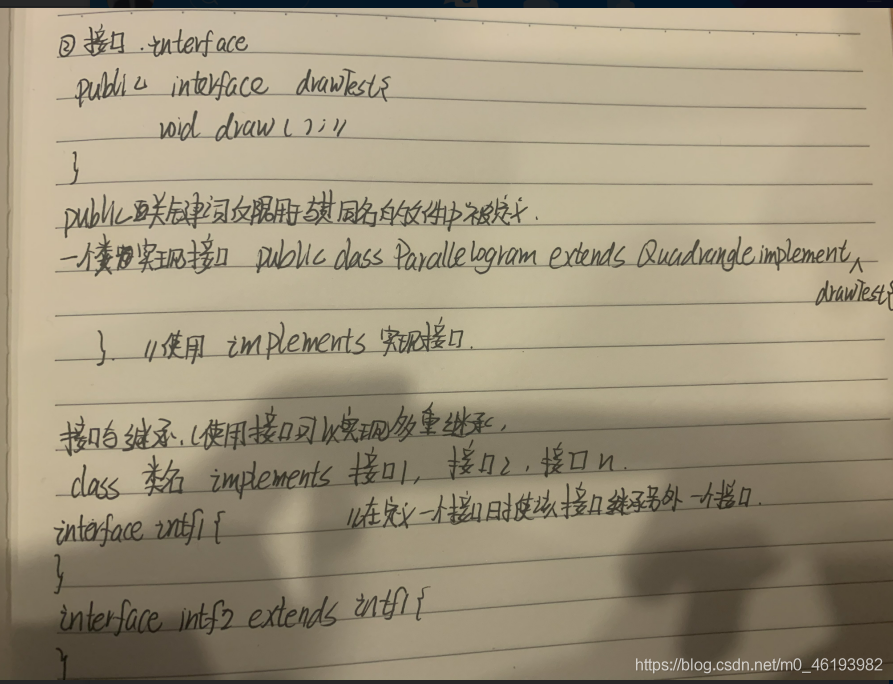 ② 接口.interface
public interface drawTest{
void draw ( );//
}
public 关键词仅限用于与其同名的文件中被定义.
一个类实现接口 public class Parallelogram extends Quadrangle implement
drawTest{
}. //使用 implements 实现接口.
接口与继承.(使用接口可以实现多重继承,
class 类名 implements 接口1, 接口2, 接口n.
interface intf1 { //在定义一个接口时使该接口继承另外一个接口.
}
interface intf2 extends intf1 {
}
https://blog.csdn.net/m0_46193982